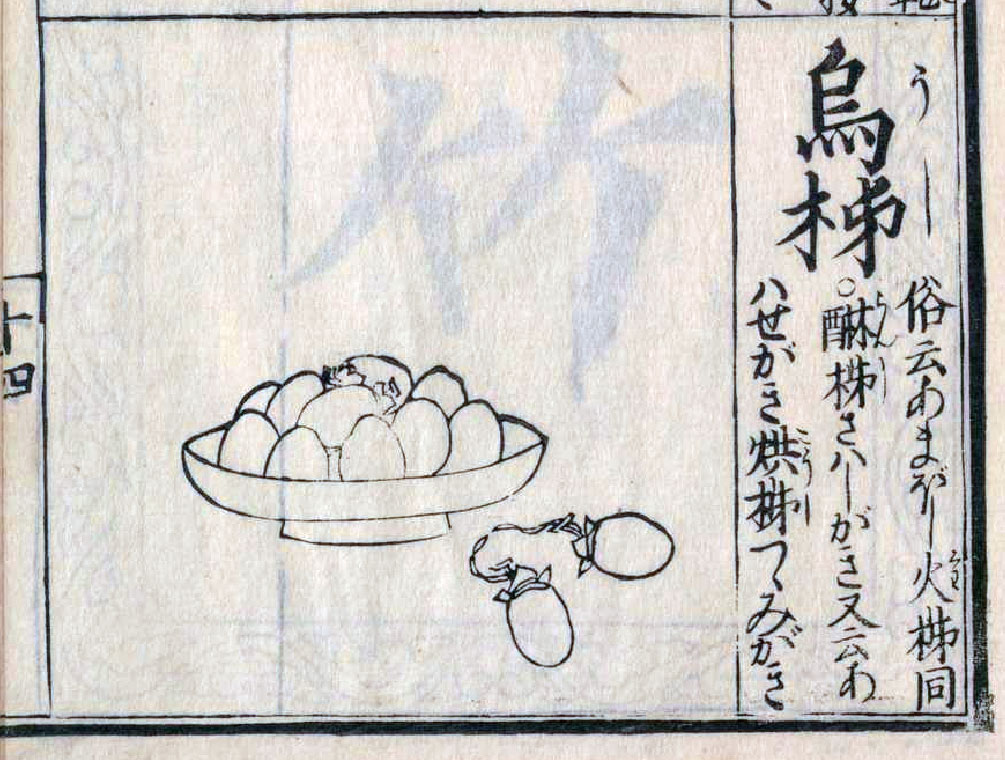 うし
烏柹
俗云あまぼし火柹同
くわ
○醂柹さハしがき又云あ
りんし
ハせがき烘柹つゝみがき
こうし
十四